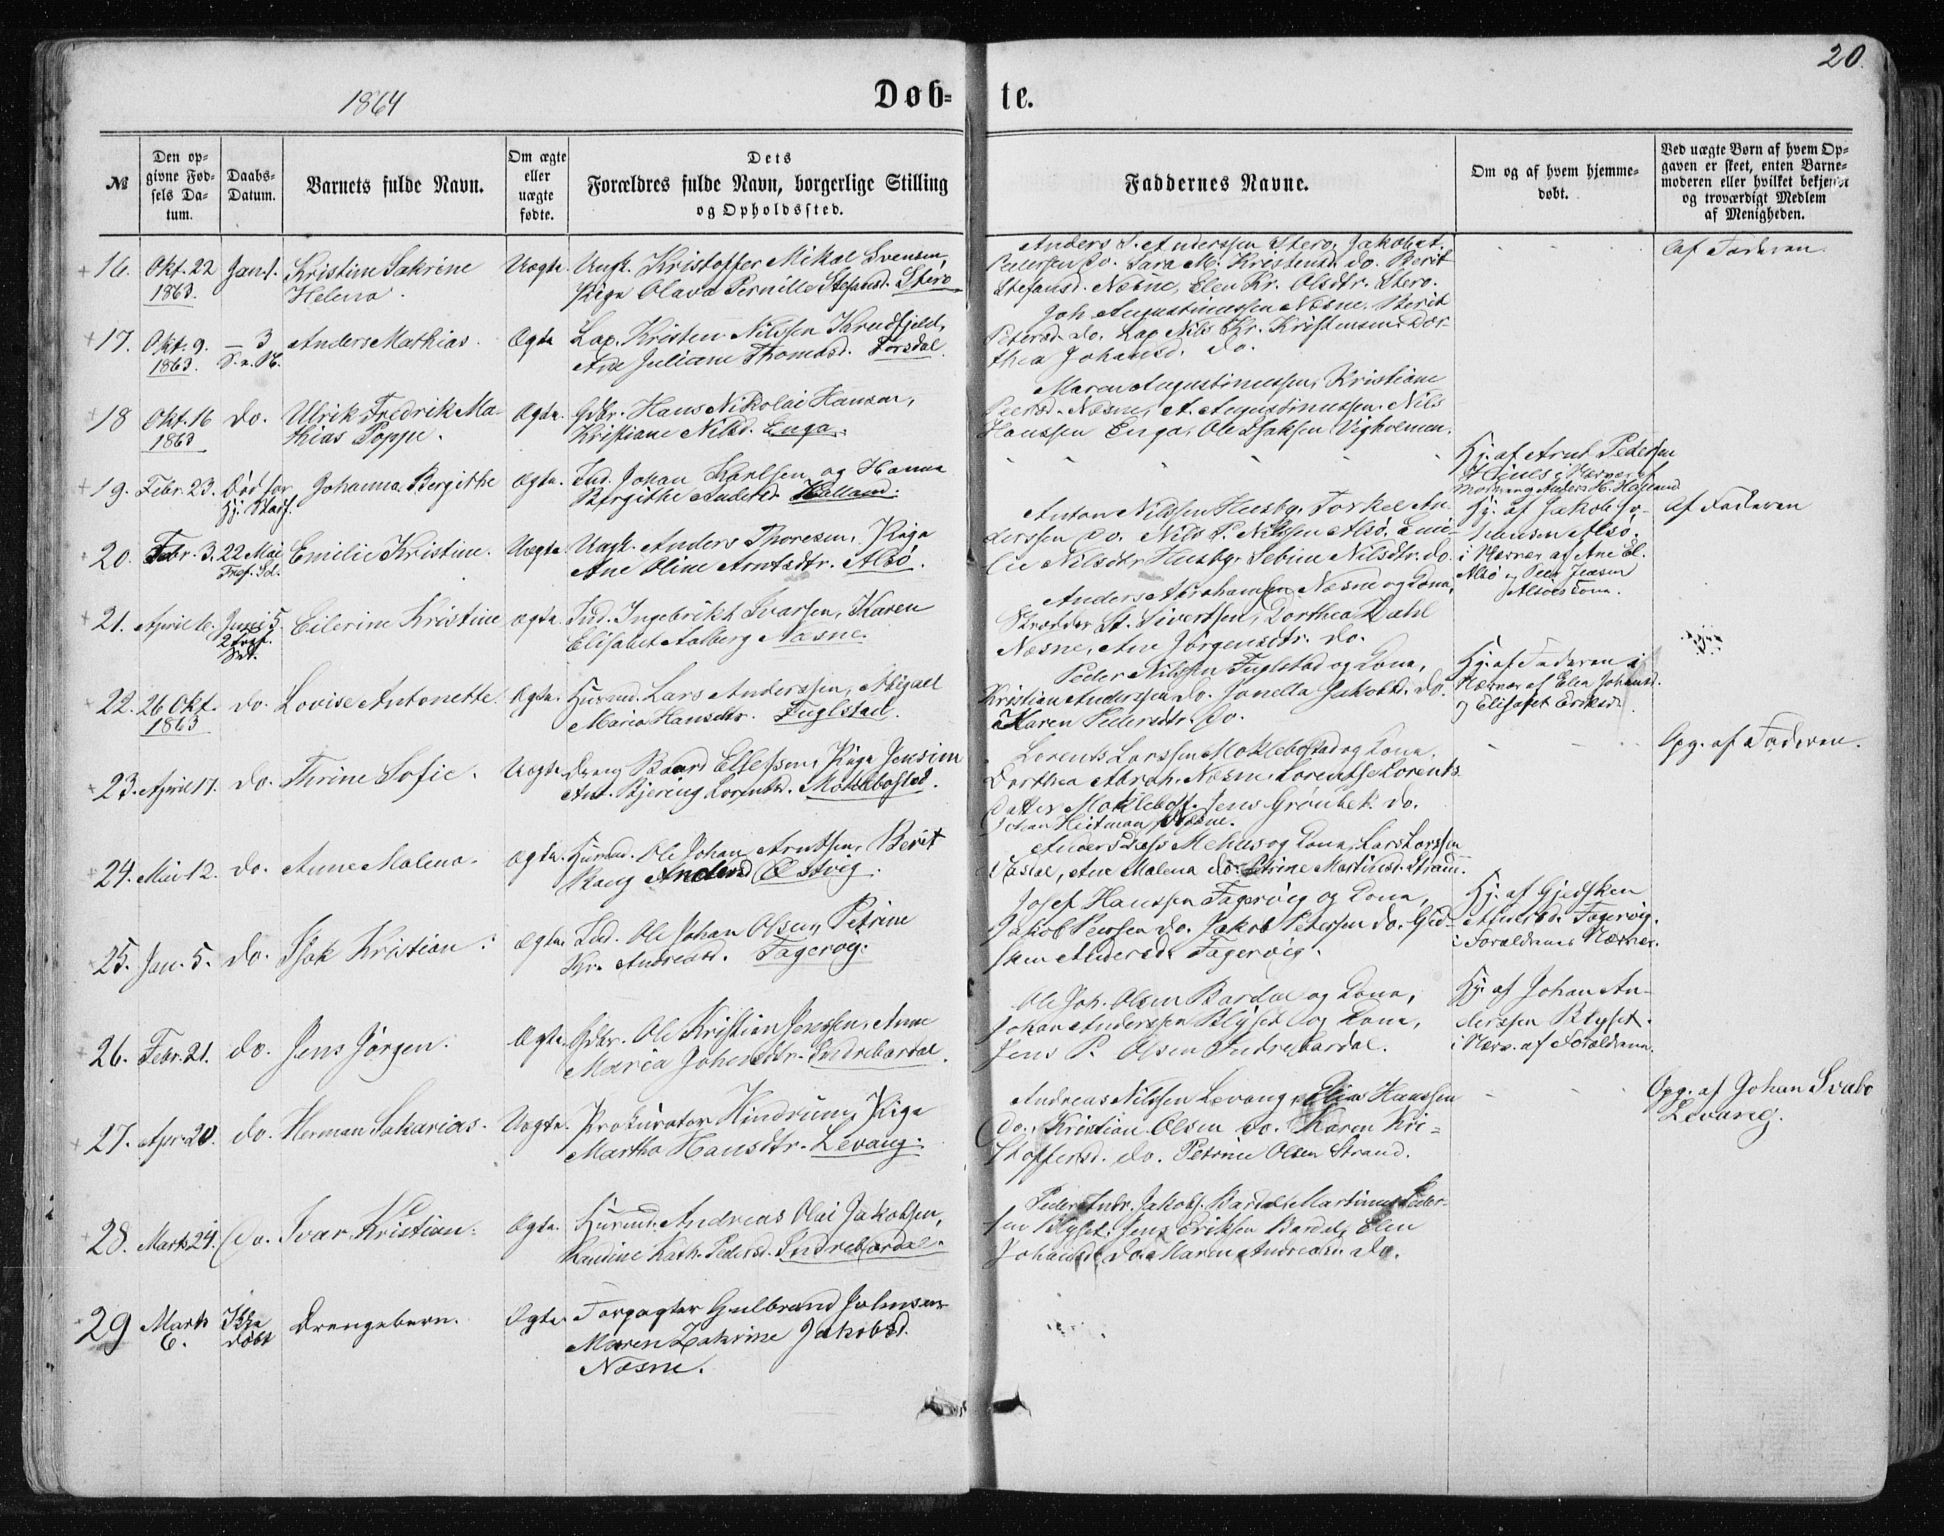 20.
1864
Døb-
te.
№
Den op-
givne Fød-
sels Da-
tum.
Daabs-
Datum.
Barnets fulde Navn.
Om ægte
eller
uægte
fødte.
Dets
Forældres fulde Navn, borgerlige Stilling
og Opholdssted.
Faddernes Navne.
Om og af hvem hjemme-
døbt.
Ved uægte Børn af hvem Op-
gaven er skeet, enten Barne-
moderen eller hvilket bekjendt
og troværdigt Medlem
af Menigheden.
16. Okt. 22 Kristine Sakrine Uægte. Ungk. Kristoffer Mikal Svensen,
1863. Helena. Pige Olava Pernille Stefansd.
Anders Anderssen
Pedersen do. Sara M. Kristensd. do. Berit
Stefansd. Næsne, Elen Kr. Olsdtr.
Af Faderen.
17. Okt. 9. 3 Anders Mathias. Ægte Lap. Kristen Nilssen
1863. Ane Juliane Thomasd.
Joh. Augustinussen Næsne. Berit
Petersd. do. Lap Nils Kr. Kristensen Dor-
thea Johansd. do.
18 Okt. 16 do. Ulrik Fredrik Ma- Ægte. Gdbr. Hans Nikolai Hansen,
1863 thias Poppe. Kristiane Nilsd. Enga.
Maren Augustinussen, Kristiane
Peersd. Næsne, A. Augustinussen. Nils
Hanssen Enga, Ole Isaksen Vigholmen.
19. Febr. 23. Død før Johanna Bergithe Ægte. Ind. Johan Karlsen og Hanna
Hj. Bergithe Andersd. Halland.
Hj. af Arnt Pedersen
20. Febr. 3. 22 Mai Emilie Kristine. Uægte Ungk. Anders Thoresen, Pige
Ane Oline Arntsdtr. Alsø.
Anton Nilssen Husby, Torkel An-
derssen do. Nils P. Nilssen Alsø. Emi-
lie Nilsdtr Husby, Sebine Nilsdtr. do.
Hj. af Jakob Jo-
hansen Alsø.
i Nærvær af Ane El.
Alsø og Peder Jensen
Af Faderen
21. April 6. Juni 5. Eilerine Kristine Ægte. Ind. Ingebrikt Ivarsen, Karen
Elisabet Aalberg Næsne.
Anders Abrahamsen Næsne og Kona,
Skrædder St. Sivertsen, Dorthea Dahl
Næsne, Ane Jørgensdtr. do.
22. 26 Okt. do. Lovise Antonette. Ægte. Husmd. Lars Anderssen, Abigael
1863 Maria Hansdtr. Fuglstad.
Peder Nilssen Fuglstad og Kona,
Kristian Anderssen do. Janetta Jakobsd. do.
Karen Pedersdtr. do.
Hj. af Faderen i
Nærvær af Elen Johansd.
og Elisabet Eriksd.
23. April 17. do. Thrine Sofie. Uægte Dreng Baard Ellefssen, Pige Jensine
Ant. Bjering Lorentsd. Moklebostad.
Lorents Larssen Moklebostad og Kona,
Dorthea Abrah. Næsne, Lorentse Lorents
Datter Moklebost. Jens Grønbek do.
Johan Heitman Næsne.
Opg. af Faderen.
24. Mai 12. do. Anne Malena. Ægte. Husmd. Ole Johan Arntsen, Berit
Andersd Østvig.
Anders Mehus og Kona, Lars Larssen
Ane Malena do.
25. Jan. 5. do. Isak Kristian. Ægte. Ind. Ole Johan Olsen, Petrine
Kr. Andreasd. Fagervig.
Josef Hanssen Fagervig og Kona,
Jakob Peerssen do. Jakob Petersen do. Gjed-
sken Andersd. Fagervig.
Hj. af Gjedsken
Andersd. Fagervig.
i Forældrenes Nærvær.
26. Febr. 21. do. Jens Jørgen. Ægte. Gdbr. Ole Kristian Jenssen, Anne
Maria Johansdtr. Indrebardal.
Ole Joh. Olsen Bardal og Kona,
Johan Anderssen Blyset og Kona,
Jens P. Olsen Indrebardal.
Hj. af Johan An-
derssen Blyset.
i Nærv. af Forældrene.
27. Apr. 20. do. Herman Sakarias. Uægte. Prokurator Hindrum, Pige
Martha Hansdtr. Levang.
Andreas Nilssen Levang, Elias Hanssen
do. Kristian Olsen do. Karen Kri-
stoffersd. do. Petrine Olsen Strand.
Opg. af Johan Svabo
Levang.
28. Marts 24. do. Ivar Kristian. Ægte. Husmd. Andreas Olai Jakobsen,
Kath. Pedersd. Indrebardal.
Peder Andr. Jakobs. Bardal, Martinus Peder-
sen Blyset. Jens Eriksen Bardal, Elen
Johansd. do. Maren Andreasd. do.
29 Marts Ikke Drengebarn. Ægte. Forpagter Gulbrand Johnsen
6. døbt Maren Zakrine Jakobsd.
Næsne.